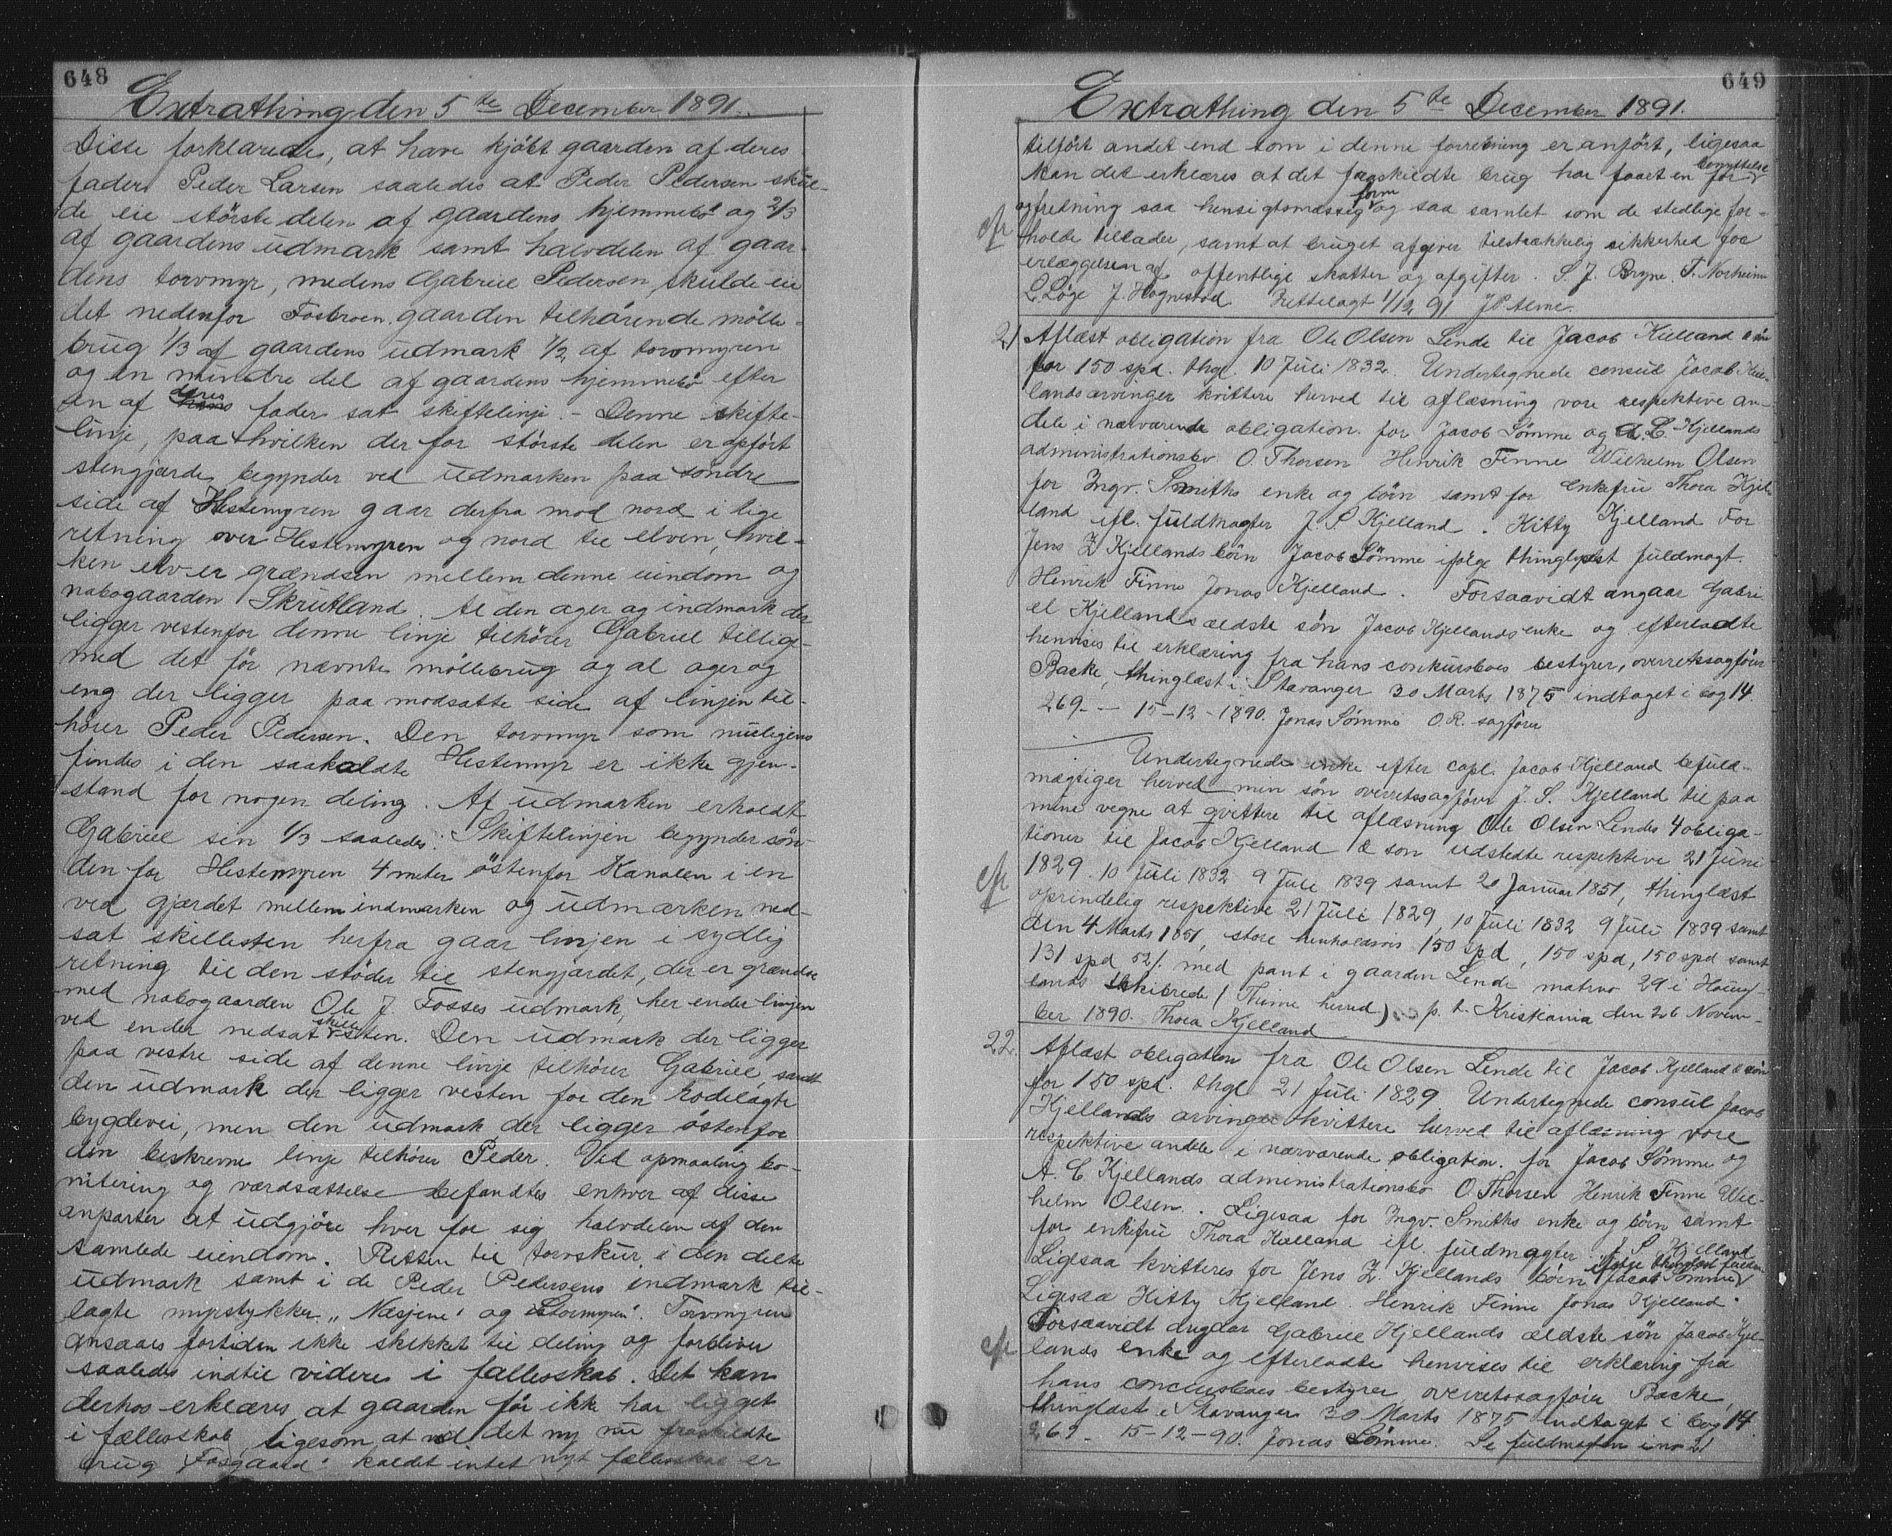 648
Extrathing den 5te December 1891.
Disse forklaredes, at have kjöbt gaarden af deres
fader Peder Larsen saaledes at Peder Pedersen skul-
de eie störste delen af gaardens hjemmebö og 2/3
af gaardens udmark samt halvdelen af gaar-
dens torvmyr, medens Gabriel Pedersen skulde eie
det nedenfor Fosbroen gaarden tilhörende mölle-
brug 1/3 af gaardens udmark 1/2 af torvmyren
og en mindre del af gaardens hjemmebö efter
en af deres fader sat skiftelinje. - Denne skifte-
linje, paa hvilken der for störste delen er opfört
stengjærde begynder ved udmarken paa söndre
side af Hestemyren gaar derfra mod nord i lige
retning over Hestemyren og nord til elven, hvil-
ken elv er grændsen mellem denne eiendom og
nabogaarden Skrutland. Al den ager og indmark der
ligger vestenfor denne linje tilhörer Gabriel tillige-
med det för nævnte möllebrug og al ager og
eng der ligger paa modsatte side af linjen til-
hörer Peder Pedersen. Den torvmyr som muligens
findes i den saakaldte Hestemyr er ikke gjen-
stand for nogen deling. Af udmarken erholdt
Gabriel sin 1/3 saaledes: Skiftelinjen begynder sön-
den for Hestemyren 4 meter östenfor Kanalen i en
ved gjærdet mellem indmarken og udmarken ned-
sat skillesten herfra gaar linjen i sydlig
retning til den stöder til stengjærdet, der er grændse
med nabogaarden Ole J. Fosses udmark, her ender linjen
ved ender nedsat skillesten. Den udmark der ligger
paa vestre side af denne linje tilhörer Gabriel, samt
den udmark der ligger vesten for den rodelagte
bygdevei, men den udmark der ligger östenfor
den beskrevne linje tilhörer Peder. Ved opmaaling bo-
nitering og værdsættelse befandtes enhver af disse
anparter at udgjöre hver for sig halvdelen af den
samlede eiendom. Retten til torvskur i den delte
udmark samt i de Peder Pedersens indmark til-
lagte myrstykker "Næsjene" og "Stormyren". Torvmyren
ansaaes fortiden ikke skikket til deling og forbliver
saaledes indtil videre i fællesskab. Det kan
derhos erklæres at gaarden för ikke har ligget
i fællesskab, ligesom at ved det ny nu fraskildte
brug "Fosgaard" kaldet intet nyt fællesskab er
649
Extrathing den 5te December 1891.
tilfört andet end som i denne forretning er anfört, ligesaa
kan det erklæres at det fraskildte brug har faaet en for benyttelse
og fredning saa hensigtsmæssig form og saa samlet som de stedlige for-
cfr
holde tillader, samt at bruget afgiver tilstrækkelig sikkerhed for
erlæggelsen af offentlige skatter og afgifter. S. J. Bryne T. Norheim
L. Löge J. Hognestad Rettelagt 1/12 91 JPAlme.
21 Aflæst obligation fra Ole Olsen Lende til Jacob Kielland & sön
for 150 spd. thgl. 10 Juli 1832. Undertegnede consul Jacob Kiel-
lands arvinger kvittere herved til aflæsning vore respektive an-
dele i nærværende obligation. for Jacob Sömme og A. C. Kjellands
administrationsbo O. Thorsen Henrik Finne Wilhelm Olsen
for Ingv. Smiths enke og börn samt for enkefru Thora Kjel-
land ifl. fuldmagter J. S. Kjelland. Kitty Kjelland For
Jens Z Kjellands börn Jacob Sömme ifölge thinglyst fuldmagt.
Henrik Finne Jonas Kjelland. Forsaavidt angaar Gabri-
el Kjellands ældste sön Jacob Kjellands enke og efterladte
henvises til erklæring fra hans conkursboes bestyrer, overretssagförer
Backe, thinglæst i Stavanger 30 Marts 1875 indtaget i bog 14
269. - 15-12-1890. Jonas Sömme O.R. sagförer
Undertegnede enke efter capt. Jacob Kjelland befuld-
mægtiger herved min sön overretssagförer J. S. Kjelland til paa
mine vegne at qvittere til aflæsning Ole Olsen Lendes 4 obliga-
tioner til Jacob Kjelland & son udstedte respektive 21 Juni
cfr
1829. 10 Juli 1832 9 Juli 1839 samt 20 Januar 1851, thinglæst
oprindelig respektive 21 Juli 1829, 10 Juli 1832 9 Juli 1839 samt
den 4 Marts 1851, store henholdsvis 150 spd, 150 spd, 150 spd samt
131 spd 52/. med pant i gaarden Lende matr no 29 i Haug-
lands skibrede (Thime herred) p. t. Kristiania den 26 Novem-
ber 1890. Thora Kjelland
22. Aflæst obligation fra Ole Olsen Lende til Jacob Kjelland & sön
for 150 spd. thgl 21 Juli 1829 Undertegnede consul Jacob
Kjellands arvinger kvittere herved til aflæsning vore
respektive andele i nærværende obligation. for Jacob Sömme og
A. C Kjellands administrationsbo O. Thorsen Henrik Finne Wil-
helm Olsen. Ligesaa for Ingv. Smiths enke og börn samt
for enkefru Thora Kielland ifl. fuldmagter J. S. Kjelland
Ligesaa kvitteres for Jens Z. Kjellands börn ifölge thinglæst fuldm. Jacob Sömme
Ligesaa Kitty Kjelland. Henrik Finne Jonas Kjelland.
Forsaavidt angaar Gabriel Kjellands ældste sön Jacob Kjel-
cfr
lands enke og efterladte henvises til erklæring fra
hans concursboes bestyrer overretssagförer Backe,
thinglæst i Stavanger 30 Marts 1875 indtaget i bog 14.
269. 15-12-90. Jonas Sömme. Se fuldmagten i no 21